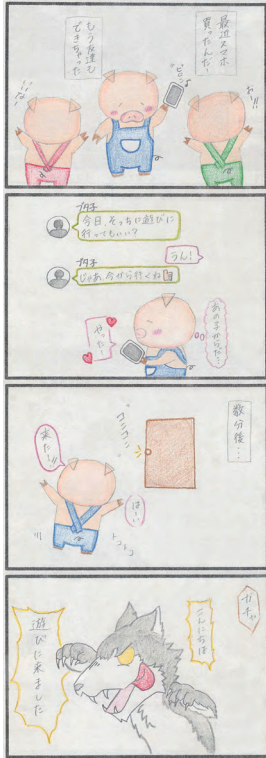 最近スマホ
買ったんだ!
おぉ!!
ピロン♪
もう友達も
できちゃった
いいな〜
ブタ子
今日、そっちに遊びに
行ってもいい?
うん!
ブタ子
じゃあ、今から行くね
あの子からだ…
やったー
数分後…
コンコン
来た〜!!
はーい
トコトコ
ガチャ
こんにちは
遊びに来ました